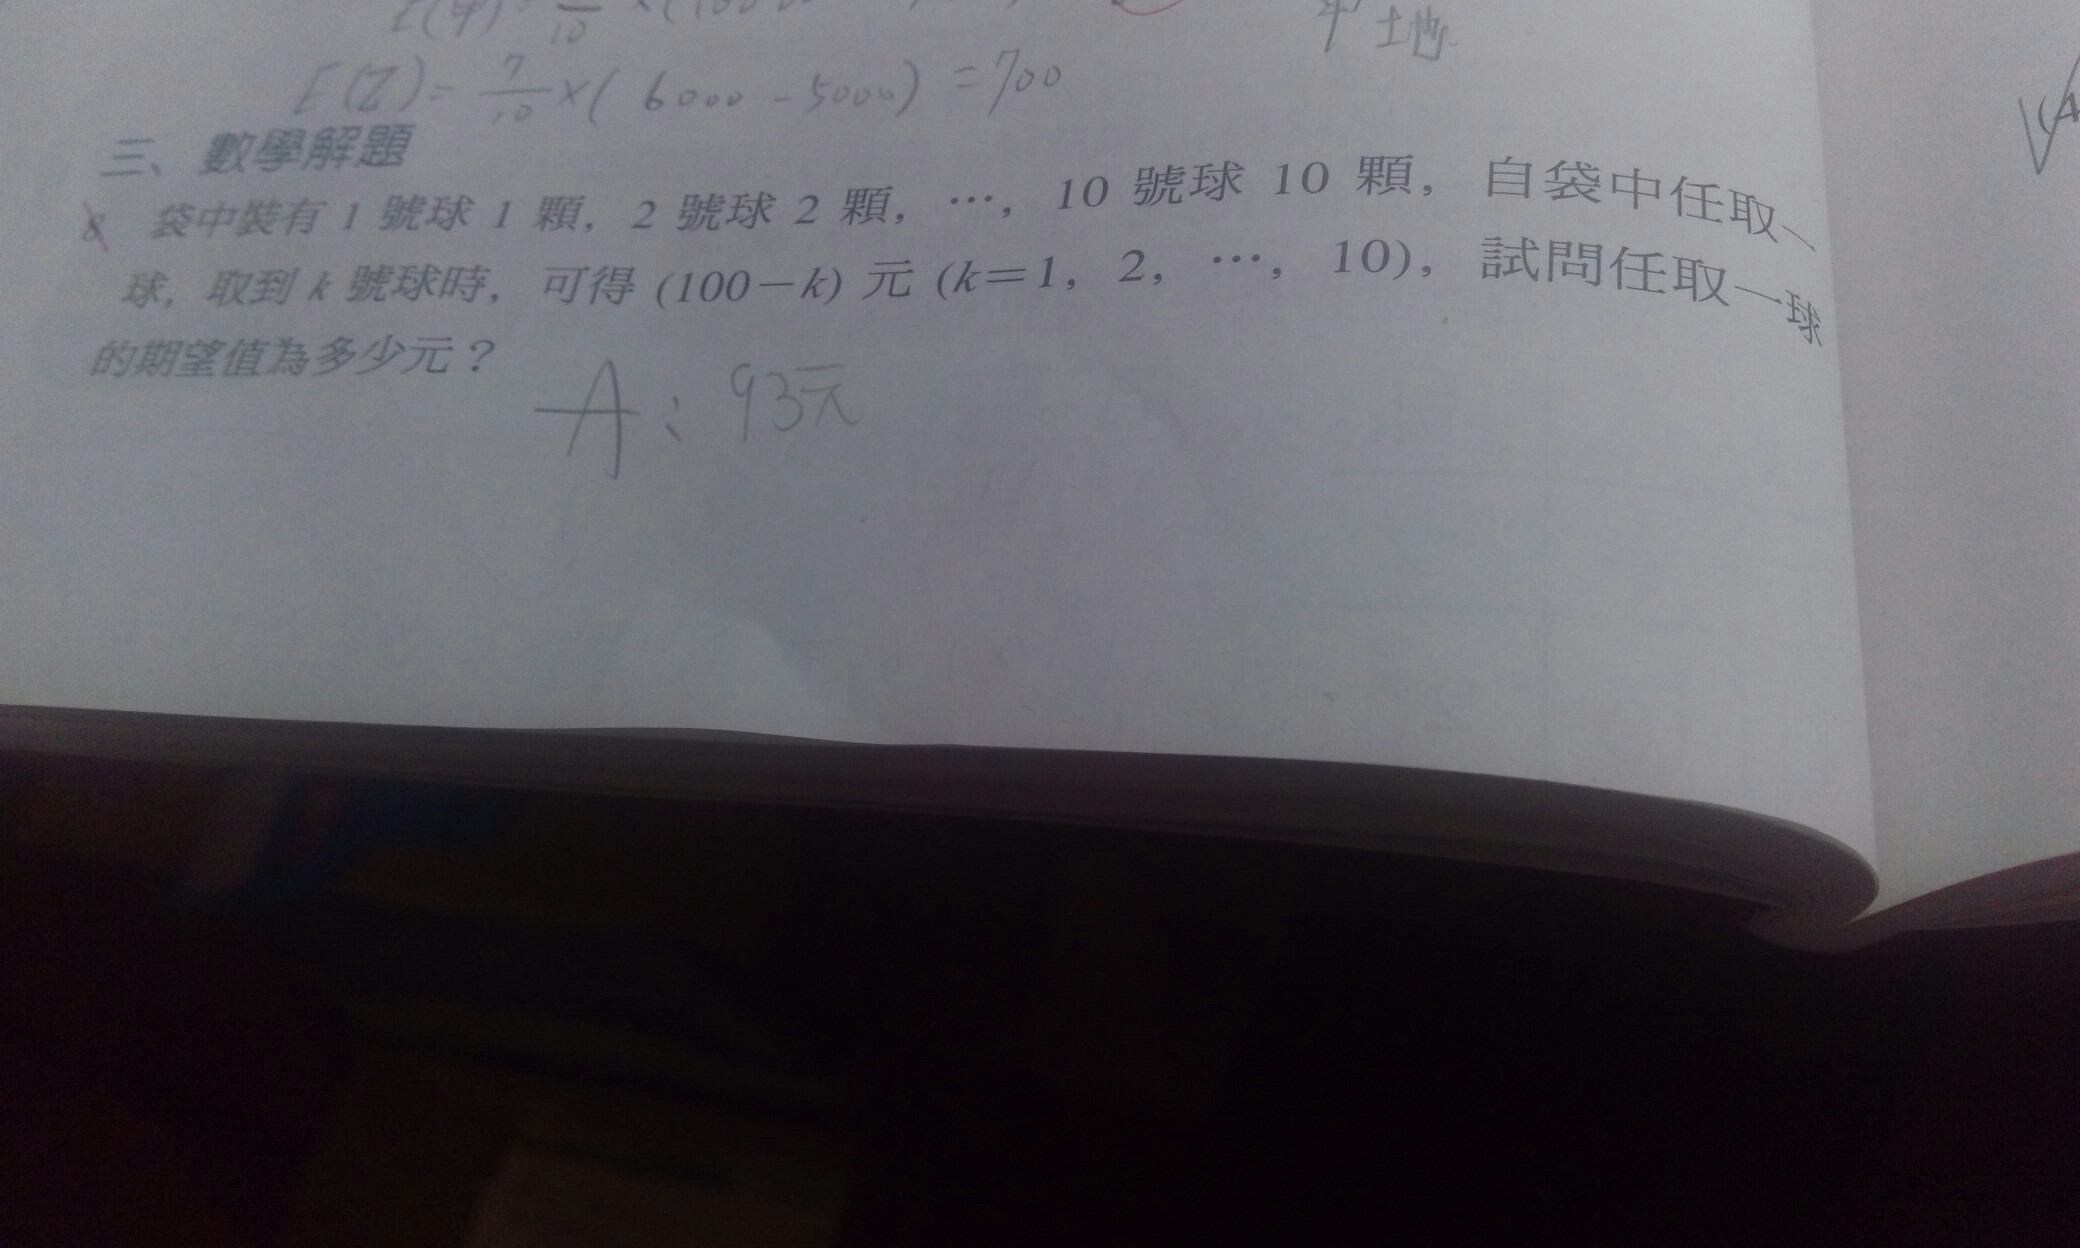 E(乙)= 7/10 ×( 6000 -5000) =700
土地
三、數學解題
8 袋中裝有 1 號球 1 顆，2 號球 2 顆，…，10 號球 10 顆，自袋中任取一
球，取到 k 號球時，可得 (100－k) 元 (k＝1，2，…，10)，試問任取一球
的期望值為多少元？
A: 93元